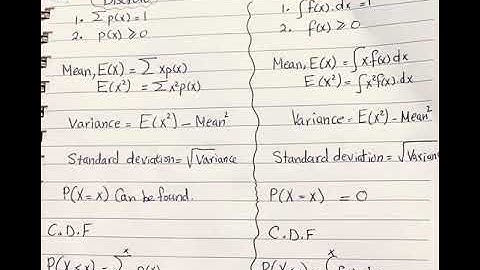 Discrete
1. ∑p(x)=1
2. p(x) ≥ 0
Mean, E(X) = ∑ xp(x)
E(x²) = ∑x²p(x)
Variance = E(x²) - Mean²
Standard deviation = √Variance
P(X=x) Can be found.
C.D.F
P(X≤x) = ∑ˣ p(x)
1. ∫f(x).dx = 1
2. f(x) ≥ 0
Mean, E(X) = ∫x.f(x) dx
E(x²) = ∫x²f(x).dx
Variance = E(x²) - Mean²
Standard deviation = √Variance
P(X=x) = 0
C.D.F